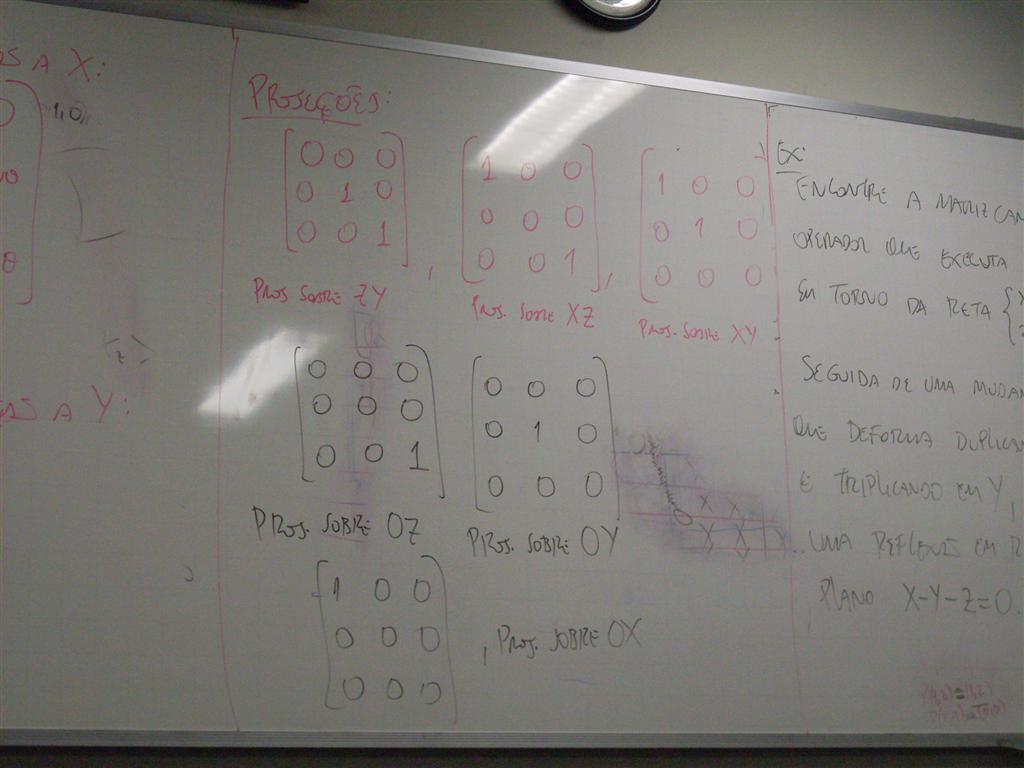 A X:
A Y:
PROJEÇÕES:
0 0 0
0 1 0
0 0 1 ,
PROJ. SOBRE ZY
1 0 0
0 0 0
0 0 1 ,
PROJ. SOBRE XZ
1 0 0
0 1 0
0 0 0
PROJ. SOBRE XY
0 0 0
0 0 0
0 0 1
PROJ. SOBRE OZ
0 0 0
0 1 0
0 0 0
PROJ. SOBRE OY
1 0 0
0 0 0
0 0 0
, PROJ. SOBRE OX
EX:
ENCONTRE A MATRIZ CAN
OPERADOR QUE EXECUTA
EM TORNO DA RETA {
SEGUIDA DE UMA MUDAN
QUE DEFORMA DUPLICAN
E TRIPLICANDO EM Y,
UMA REFLEXÃO EM R
PLANO X-Y-Z=0.